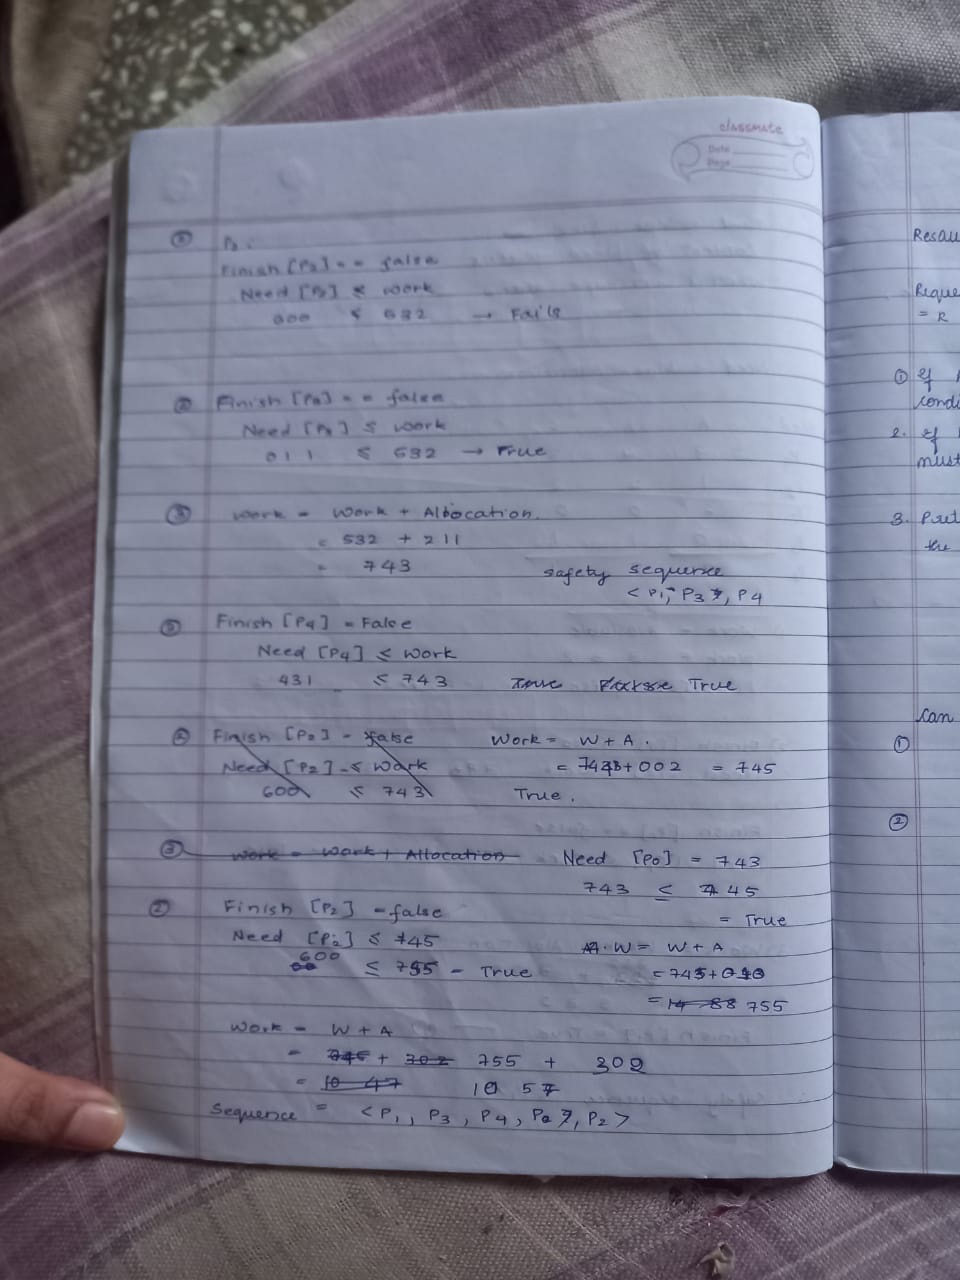 classmate
Date
Page
P2 :
Finish [P2] = = false
Need [P2] ≤ work
600 ≤ 532 → Fails
Finish [P3] = = false
Need [P3] ≤ work
011 ≤ 532 → True
③ work = work + Allocation.
= 532 + 211
= 743
safety sequence
< P1, P3, P4
Finish [P4] = False
Need [P4] ≤ work
431 ≤ 743 True
Finish [P2] - false
Need [P2] - ≤ work
600 ≤ 743
Work = W + A .
= 743 + 002 = 745
True .
work = work + Allocation
Need [P0] = 743
743 ≤ 745
= True
W = W + A
= 745 + 010
= 755
Finish [P2] = false
Need [P2] ≤ 745
600 ≤ 755 - True
Work = W + A
= 755 + 302
= 10 47 10 57
Sequence = < P1, P3, P4, P0, P2 >
Reque
= R
① If
condi
2. If
must
3.
the
Can
①
②